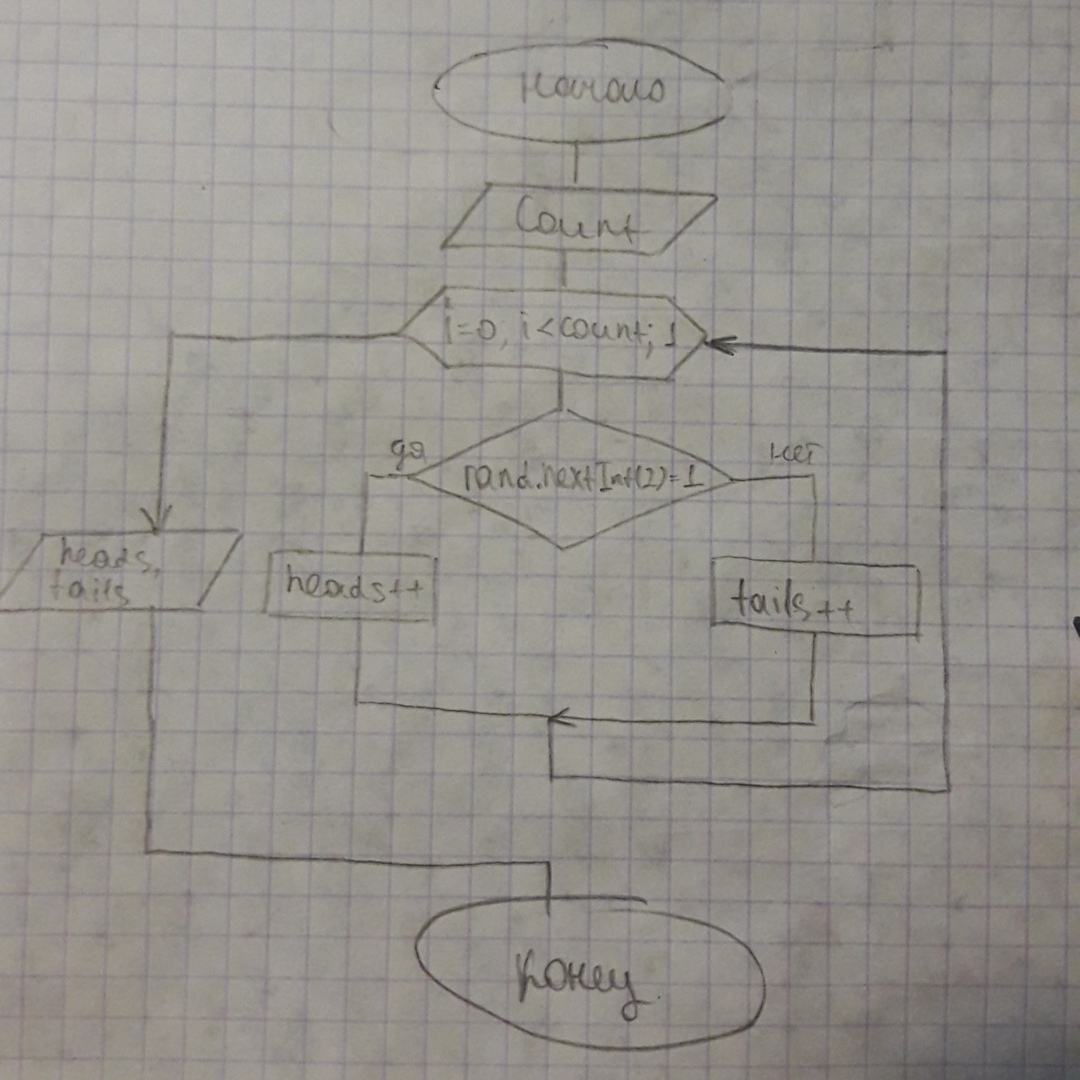 начало
Count
i=0, i<count; 1
да
нет
rand.nextInt(2)=1
heads,
tails
heads++
tails++
конец